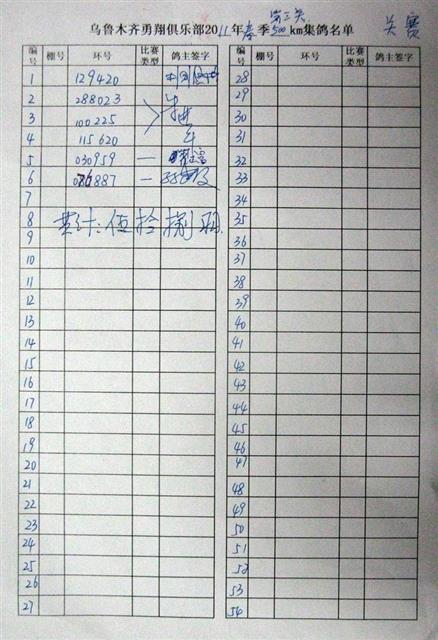 第三关
关赛
乌鲁木齐勇翔俱乐部2011年春季500km集鸽名单
编号 棚号 环号 比赛类型 鸽主签字 编号 棚号 环号 比赛类型 鸽主签字
1 129420 28
2 288023 29
3 100225 30
4 115620 31
5 030959 — 32
6 887 — 33
7 34
8 累计:伍拾捌羽 35
9 36
10 37
11 38
12 39
13 40
14 41
15 42
16 43
17 44
18 45
19 46
20 47
21 48
22 49
23 50
24 51
25 52
26 53
27 54